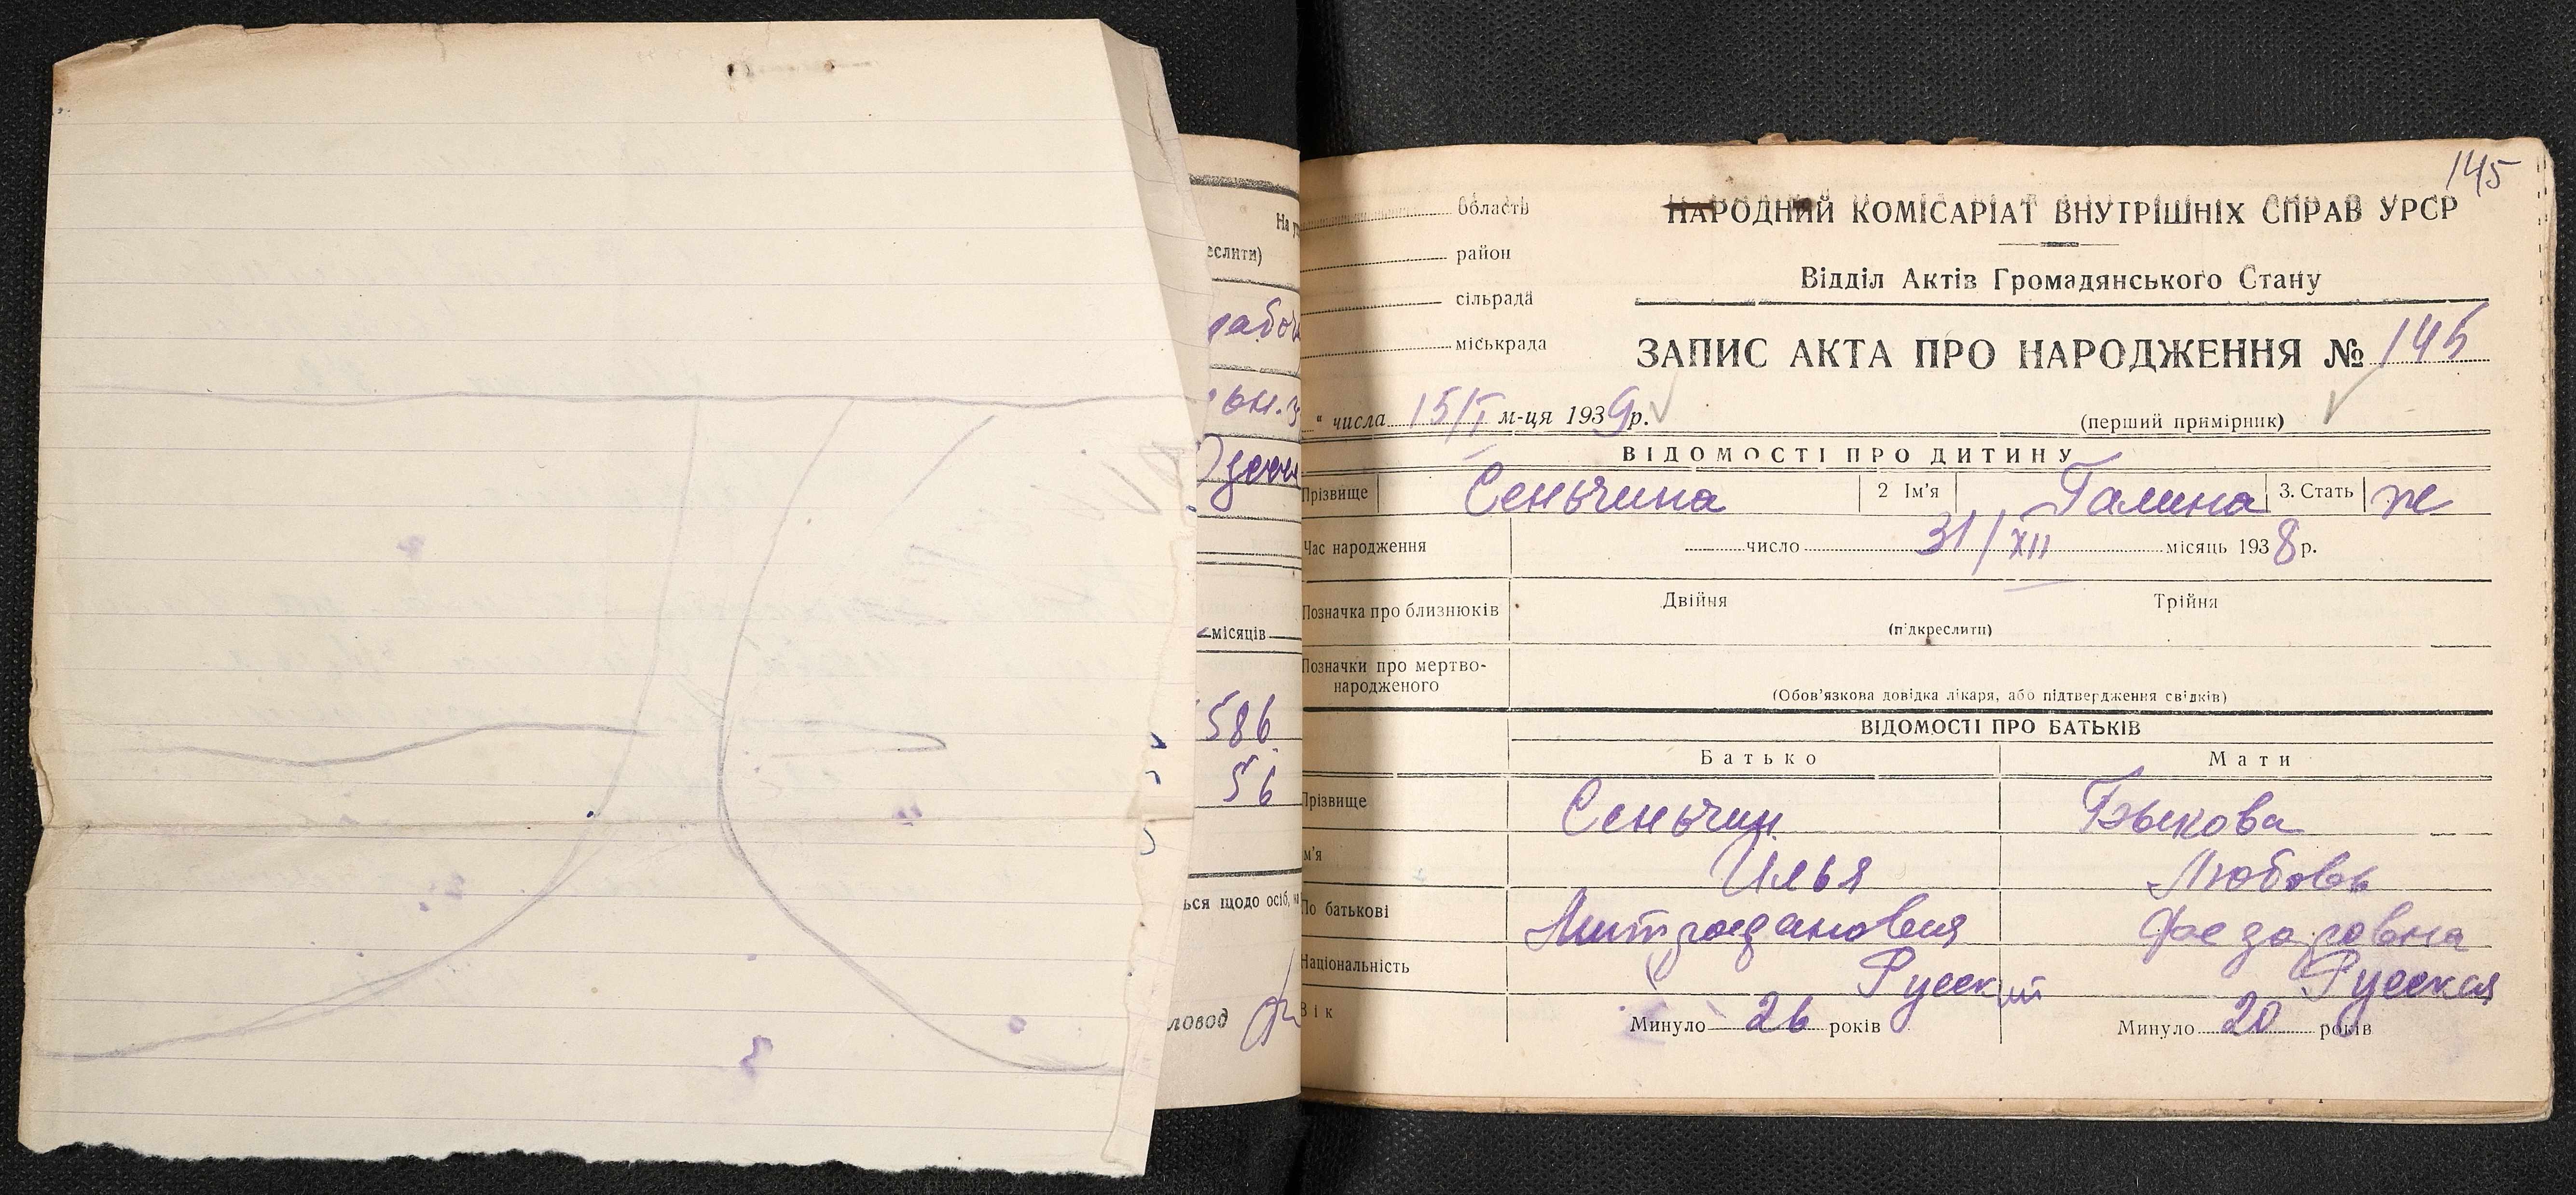 На у
еслити)
рабоч
місяців
586
56
ься щодо осіб, н
ловод
145
область
район
сільрада
міськрада
НАРОДНИЙ КОМІСАРІАТ ВНУТРІШНІХ СПРАВ УРСР
Відділ Актів Громадянського Стану
ЗАПИС АКТА ПРО НАРОДЖЕННЯ № 145
" числа 15/I м-ця 1939 р.
(перший примірник)
ВІДОМОСТІ ПРО ДИТИНУ
Прізвище Сеньчина 2 Ім'я Галина 3. Стать ж
Час народження число 31/XII місяць 1938 р.
Позначка про близнюків Двійня Трійня
(підкреслити)
Позначки про мертво-
народженого
(Обов'язкова довідка лікаря, або підтвердження свідків)
ВІДОМОСТІ ПРО БАТЬКІВ
Батько Мати
Прізвище Сеньчин Бэыкова
м'я Илья Любовь
По батькові Митрофановия
Національність Русский Русская
Вік Минуло 26 років Минуло 20 років